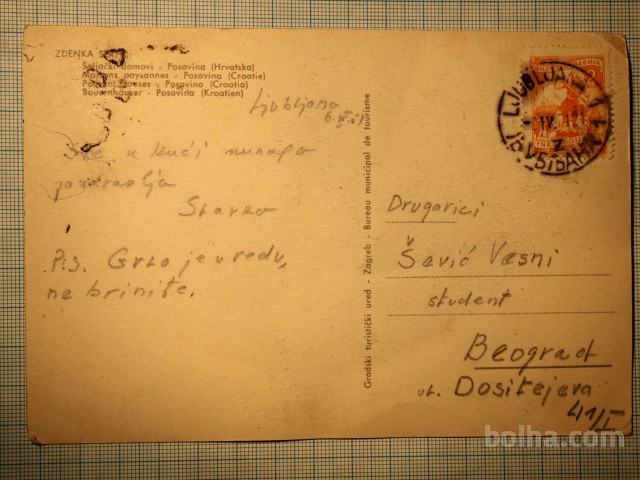 ZDENKA
Seljački domovi - Posavina (Hrvatska)
Maisons paysannes - Posavina (Croatie)
Peasant Houses - Posavina (Croatia)
Bauernhäuser - Posavina (Kroatien)
Ljubljana
Sve u kući mnogo
pozdravlja
Stavra
P.S. Grlo je u redu,
ne brinite.
Gradski turistički ured - Zagreb - Bureau municipal de tourisme
LJUBLJANA 1
Drugarici
Šević Vesni
student
Beograd
ul. Dositejeva
41/I
bolha.com